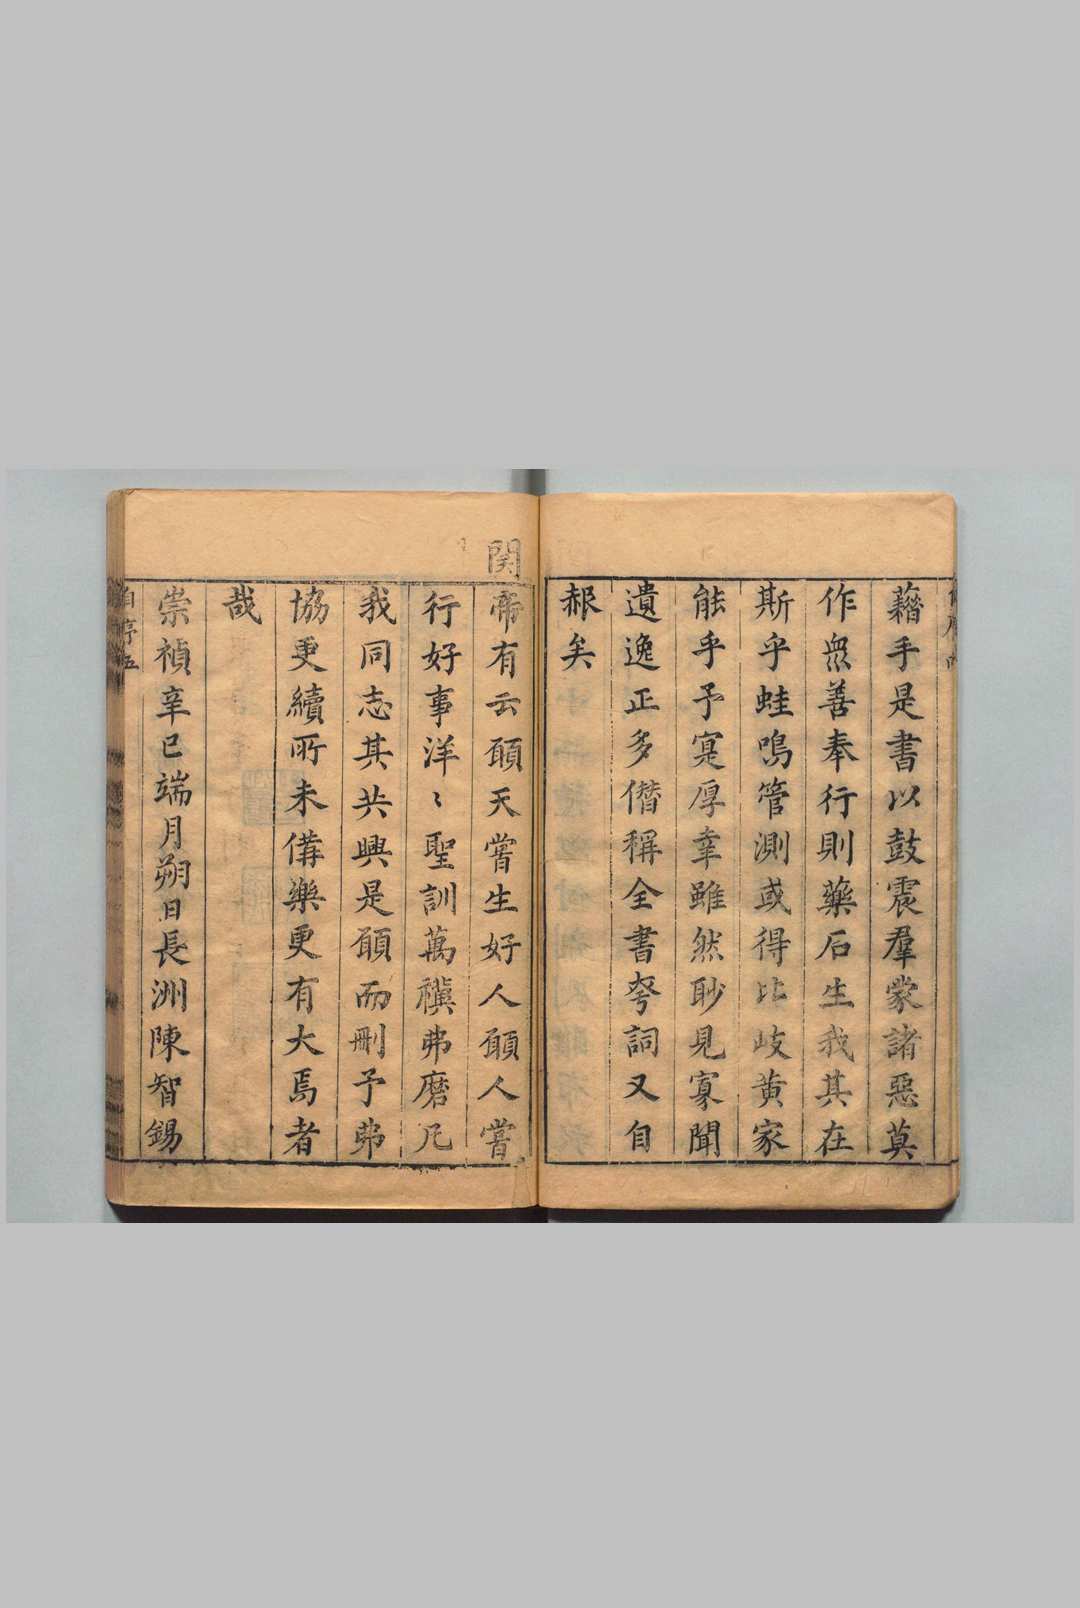 藉手是書以鼓震羣蒙諸惡莫
作衆善奉行則藥石生我其在
斯乎蛙鳴管測或得比岐黄家
能乎予寔厚幸雖然眇見寡聞
遺逸正多僭稱全書夸詞又自
赧矣
関
帝有云願天嘗生好人願人嘗
行好事洋〻聖訓萬禩弗磨凡
我同志其共興是願而刪予弗
協更續所未備樂更有大焉者
哉
崇禎辛巳端月朔日長洲陳智錫
自序五